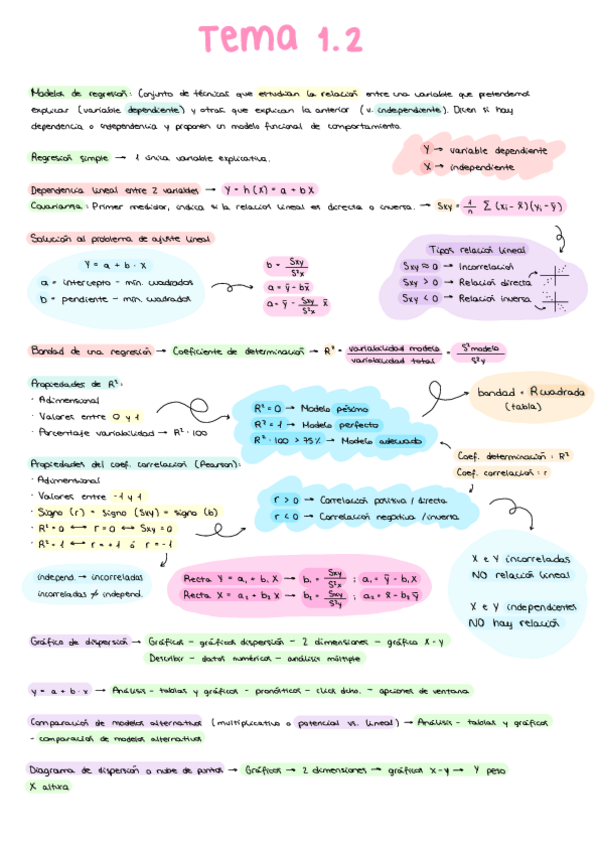 Tema 1.2
Modelos de regresión: Conjunto de técnicas que estudian la relación entre una variable que pretendemos
explicar (variable dependiente) y otras que explican la anterior (v. independiente). Dicen si hay
dependencia o independencia y proponen un modelo funcional de comportamiento.
Regresión simple → 1 única variable explicativa.
Y → variable dependiente
X → independiente
Dependencia lineal entre 2 variables → Y = h(X) = a + bX
Covarianza: Primer medidor, indica si la relación lineal es directa o inversa. → Sxy = 1/n Σ (xi - x̄)(yi - ȳ)
Solución al problema de ajuste lineal
Y = a + b · x
a = intercepto - mín. cuadrados
b = pendiente - mín. cuadrados
b = Sxy/S²x
a = ȳ - bx̄
a = ȳ - Sxy/S²x x̄
Tipos relación lineal
Sxy ≈ 0 → Incorrelación
Sxy > 0 → Relación directa
Sxy < 0 → Relación inversa
Bondad de una regresión → Coeficiente de determinación → R² = variabilidad modelo/variabilidad total = S²modelo/S²y
Propiedades de R²:
· Adimensional
· Valores entre 0 y 1
· Porcentaje variabilidad → R² · 100
R² = 0 → Modelo pésimo
R² = 1 → Modelo perfecto
R² · 100 > 75% → Modelo adecuado
bondad = R cuadrada
(tabla)
Coef. determinación: R²
Coef. correlación: r
Propiedades del coef. correlación (Pearson):
· Adimensional
· Valores entre -1 y 1
· Signo (r) = signo (Sxy) = signo (b)
· R² = 0 ↔ r = 0 ↔ Sxy = 0
· R² = 1 ↔ r = +1 ó r = -1
r > 0 → Correlación positiva / directa
r < 0 → Correlación negativa / inversa
X e Y incorreladas
NO relación lineal
X e Y independientes
NO hay relación
independ. → incorreladas
incorreladas ≠ independ.
Recta Y = a₁ + b₁ X → b₁ = Sxy/S²x ; a₁ = ȳ - b₁ x̄
Recta X = a₂ + b₂ Y → b₂ = Sxy/S²y ; a₂ = x̄ - b₂ ȳ
Gráfico de dispersión → Gráficos - gráficos dispersión - 2 dimensiones - gráfico X-Y
Describir - datos numéricos - análisis múltiple
y = a + b · x → Análisis - tablas y gráficos - pronósticos - click dcho. - opciones de ventana
Comparación de modelos alternativos (multiplicativo o potencial vs. lineal) → Análisis - tablas y gráficos
- comparación de modelos alternativos
Diagrama de dispersión o nube de puntos → Gráficos → 2 dimensiones → gráficos x-y → Y peso
X altura